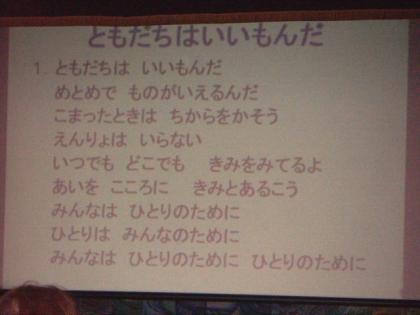 ともだちはいいもんだ
1. ともだちは いいもんだ
めとめで ものがいえるんだ
こまったときは ちからをかそう
えんりょは いらない
いつでも どこでも きみをみてるよ
あいを こころに きみとあるこう
みんなは ひとりのために
ひとりは みんなのために
みんなは ひとりのために ひとりのために